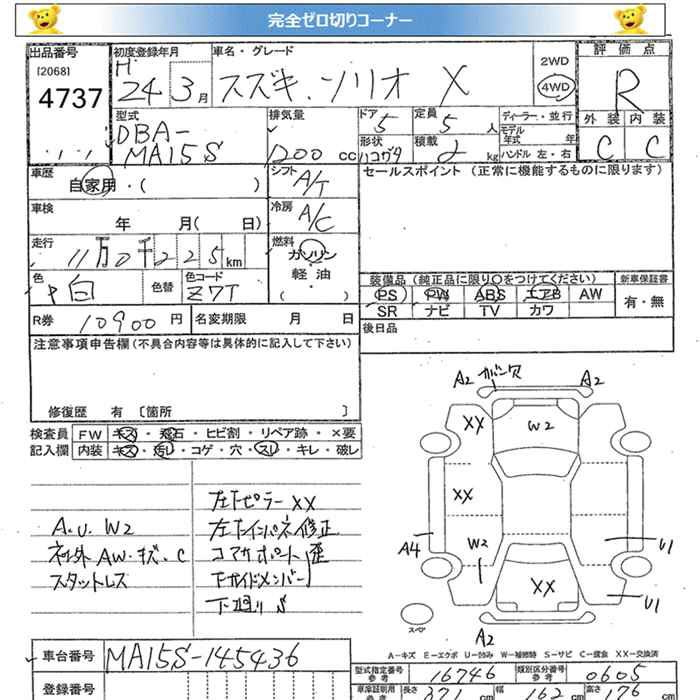 完全ゼロ切りコーナー
出品番号 初度登録年月 車名・グレード 評価点
[2068] H 24 3月 スズキ.ソリオ X 2WD
4737 4WD R
型式 排気量 ドア 定員 ディーラー・並行 外装 内装
DBA- 5 5人 モデル年式 年
MA15S 1200cc 形状 積載 kg ハンドル 左・右 C C
車歴 シフト セールスポイント (正常に機能するものに限ります)
自家用・( ) A/T
車検 冷房
年 月( 日) A/C
走行 燃料
11万0千225km ガソリン
軽油
( ・ )
色 色替 色コード 装備品 (純正品に限り○をつけてください) 新車保証書
白 Z7T PS PW ABS エアB AW 有・無
SR ナビ TV カワ
R券 10900円 名変期限 月 日 後日品
注意事項申告欄(不具合内容等は具体的に記入して下さい)
修復歴 有 〔箇所 〕
検査員 FW キズ・飛石・ヒビ割・リペア跡・×要
記入欄 内装 キズ・汚レ・コゲ・穴・スレ・キレ・破レ
A2 ガバー欠 A2
XX W2
XX
A4 W2 U1
XX U1
スペア A2
左下ピラー XX
A.U.W2 左下インパネ修正
社外AW.キズ.C コアサポート歪
スタットレス 下サイドメンバー
下廻りS
A-キズ E-エクボ U-凹み W-補修跡 S-サビ C-腐食 XX-交換済
車台番号 MA15S-145436 型式指定番号 参考 16746 類別区分番号 参考 0605
登録番号 車庫証明用 参考 長さ 371cm 幅 162cm 高さ 176cm